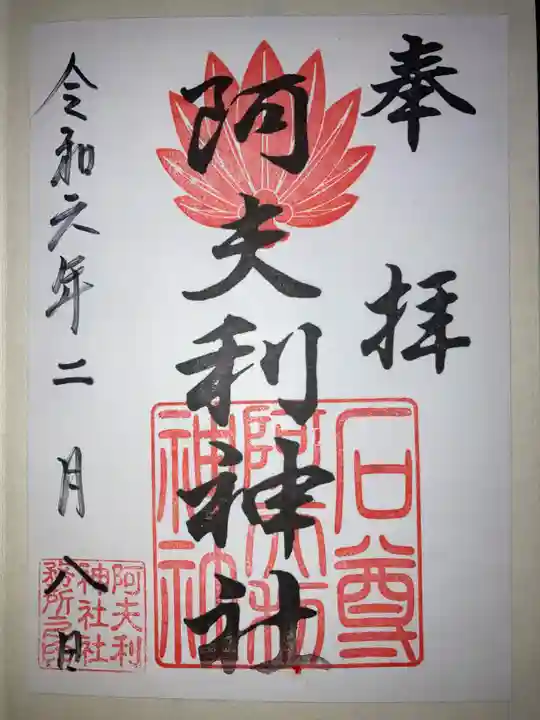 奉拝
石尊
阿夫利
神社
阿夫利神社
令和六年二月八日
阿夫利
神社社
務所之印